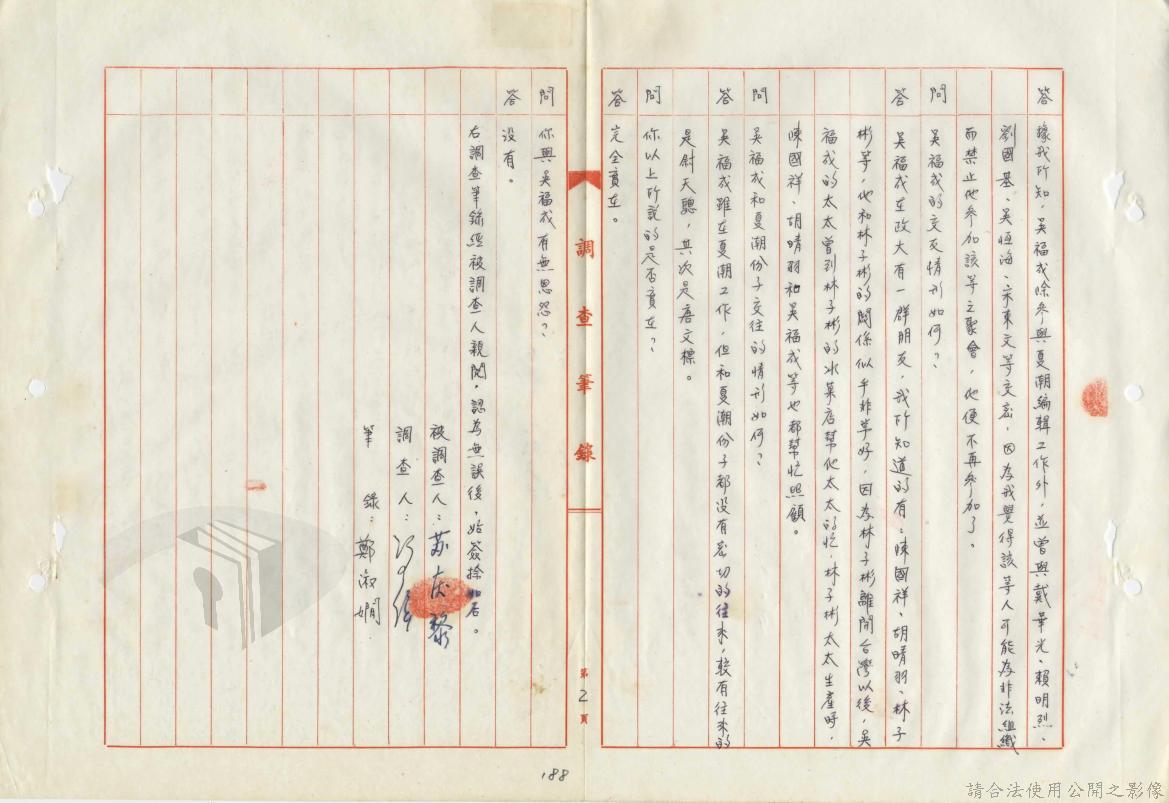 答 據我所知，吳福成除參與夏潮編輯工作外，並曾與戴華光、賴明烈、
劉國基、吳恆海、宋東文等交密，因為我覺得該等人可能為非法組織
而禁止他參加該等之聚會，他便不再參加了。
問 吳福成的交友情形如何？
答 吳福成在政大有一群朋友，我所知道的有：陳國祥、胡晴羽、林子
彬等，他和林子彬的關係似乎非常好，因為林子彬離開台灣以後，吳
福成的太太曾到林子彬的冰菓店幫他太太的忙，林子彬太太生產時，
陳國祥、胡晴羽和吳福成等也都幫忙照顧。
問 吳福成和夏潮份子交往的情形如何？
答 吳福成雖在夏潮工作，但和夏潮份子都沒有密切的往來，較有往來的
是尉天聰，其次是唐文標。
問 你以上所說的是否實在？
答 完全實在。
調查筆錄
第2頁
問 你與吳福成有無恩怨？
答 沒有。
右調查筆錄經被調查人親閱，認為無誤後，始簽捺如右。
被調查人：蘇慶黎
調查人：
筆錄：鄭淑嫻
188
請合法使用公開之影像